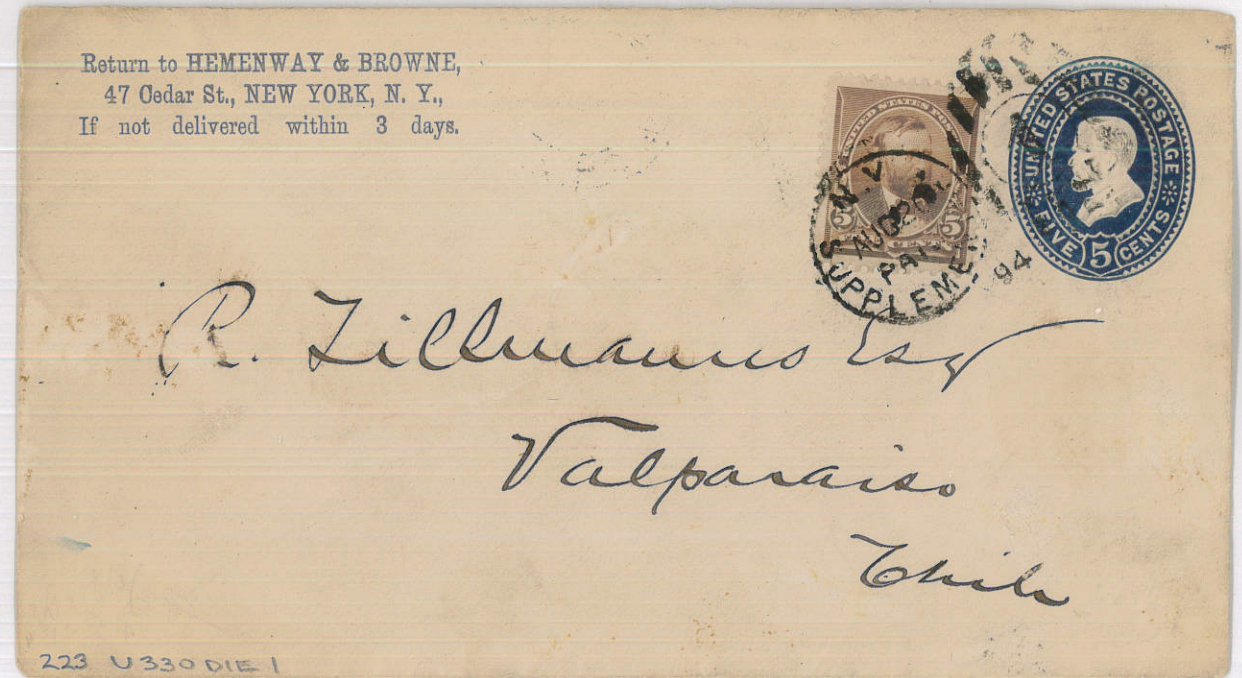 Return to HEMENWAY & BROWNE,
47 Cedar St., NEW YORK, N. Y.,
If not delivered within 3 days.
UNITED STATES POSTAGE
FIVE 5 CENTS
5 5
N.Y.
AUG 20
PAI
SUPPLEME
94
R. Tillmanns Esq
Valparaiso
Chile
223 U330 DIE 1